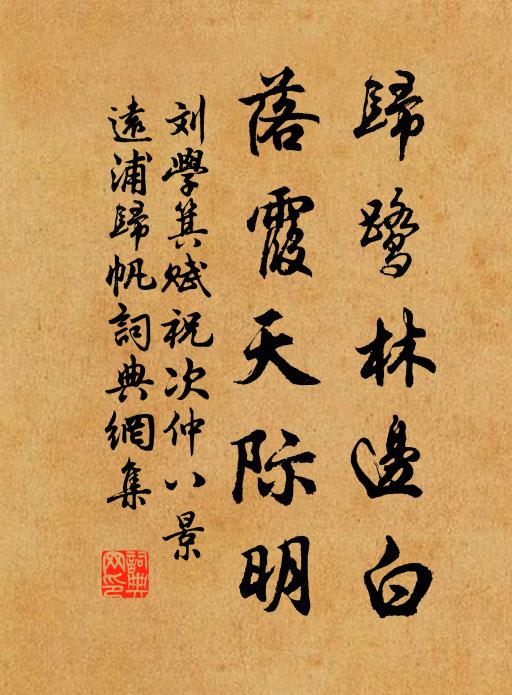 歸鹭林邊白
落霞天际明
刘學箕赋祝次仲八景
遠浦歸帆詞典網集
詞典网印